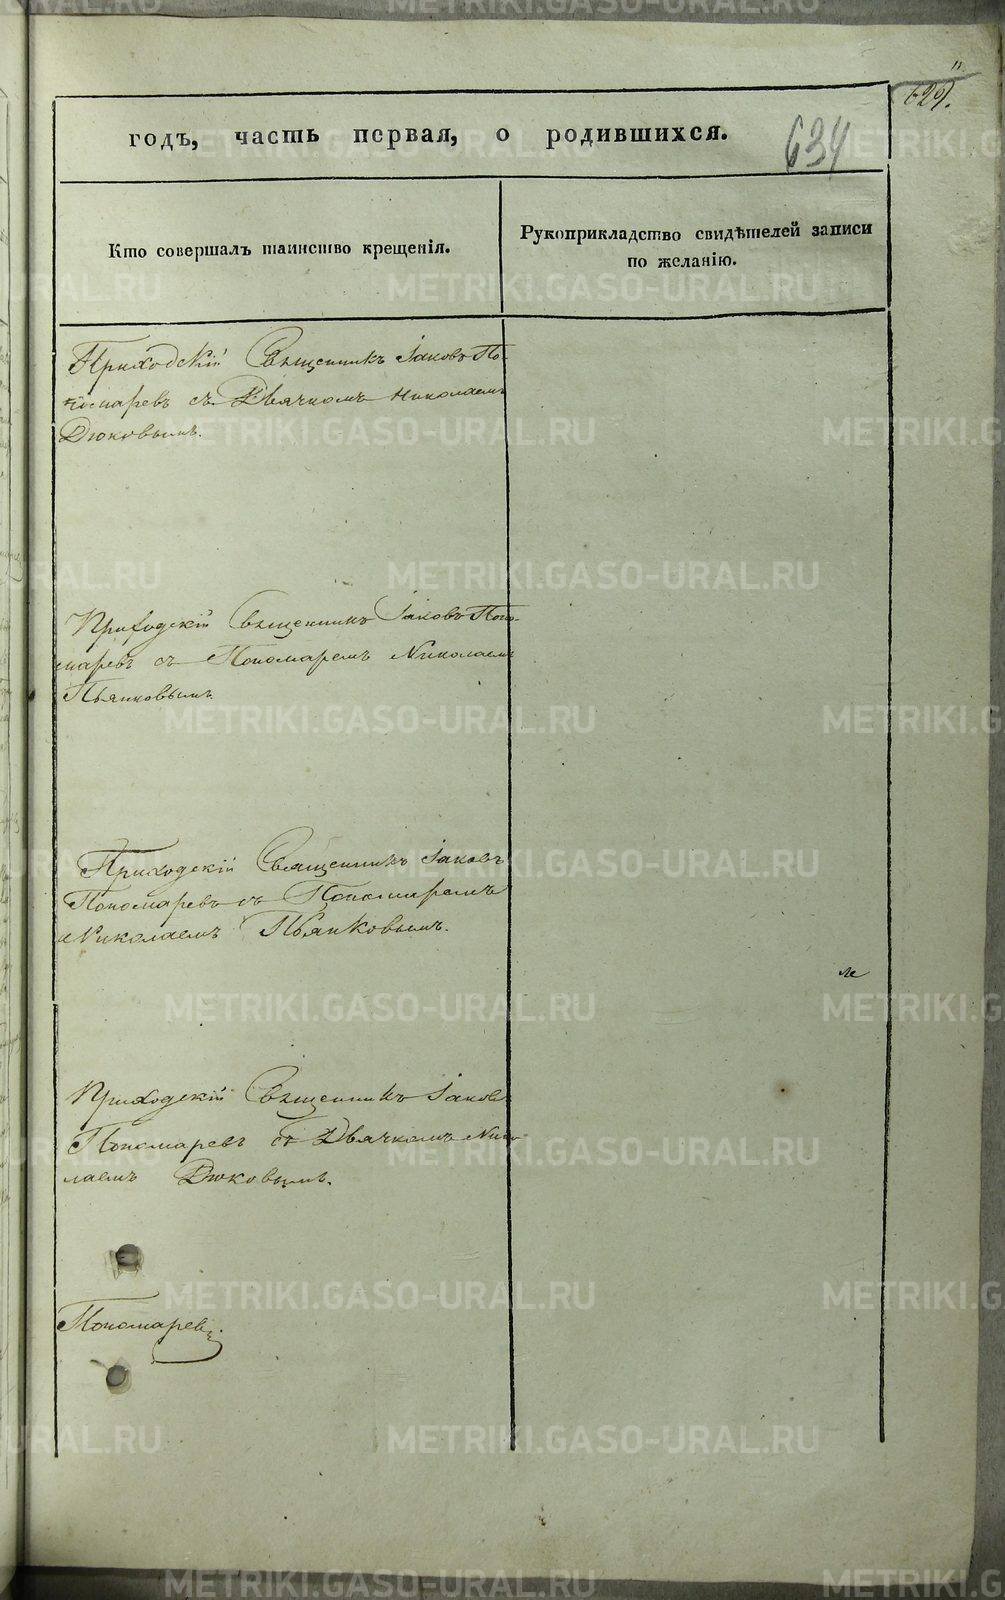 629.
годъ, часть первая, о родившихся.
634
Кто совершалъ таинство крещенія.
Рукоприкладство свидѣтелей записи
по желанію.
Приходскій Священникъ Іаковъ По-
номаревъ съ Дьячкомъ Николаемъ
Дюковымъ.
Приходскій Священникъ Іаковъ Поно-
маревъ съ Пономаремъ Николаемъ
Пьянковымъ
Приходскій Священникъ Іаковъ
Пономаревъ съ Пономаремъ
Николаемъ Пьянковымъ.
Приходскій Священникъ Іаковъ
Пономаревъ съ Дьячкомъ Нико-
лаемъ Дюковымъ.
Пономаревъ.
METRIKI.GASO-URAL.RU